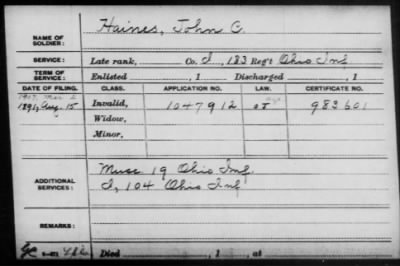 NAME OF SOLDIER: Haines, John C.
SERVICE: Late rank, Co. I, 183 Reg't Ohio Inf
TERM OF SERVICE: Enlisted , 1 Discharged , 1
DATE OF FILING. CLASS. APPLICATION NO. LAW. CERTIFICATE NO.
1891, Aug. 15 Invalid, 1047912 983601
Widow,
Minor,
ADDITIONAL SERVICES: Musc 19 Ohio Inf
I, 104 Ohio Inf
REMARKS:
Died , 1 , at